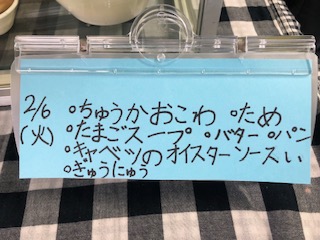 2/6 ○ちゅうかおこわ ○ため
(火) ○たまごスープ ○バター ○パン
○キャベツのオイスターソースい
○ぎゅうにゅう